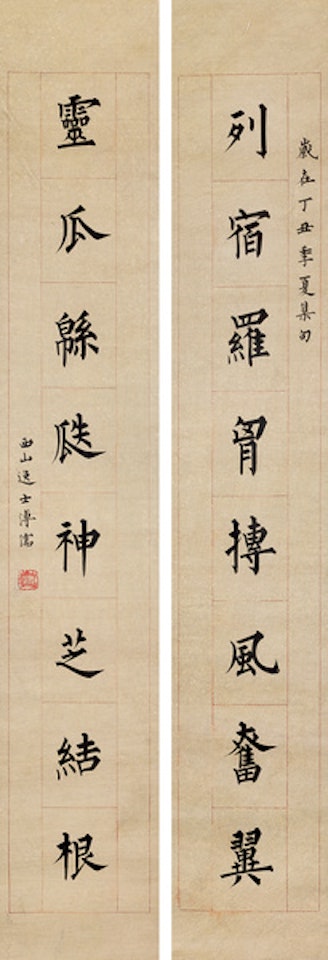 歲在丁丑季夏集句
列宿羅胷摶風奮翼
靈瓜緜瓞神芝結根
西山逸士溥儒